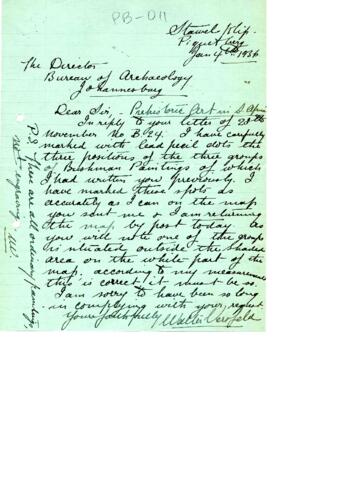 PB-011
Stawel Klip
Piquetberg
Jan 4th 1936
The Director
Bureau of Archaeology
Johannesburg
Dear Sir, - Prehistoric Art in S. Africa
In reply to your letter of 28th
November No B.24. I have carefully
marked with lead pecil dots the
three positions of the three groups
of Bushman Paintings of which
I had written you previously. I
have marked these spots as
accurately as I can on the map
you sent me & I am returning
the map by post today. As
you will note one of the groups
is situated outside the shaded
area on the white part of the
map, according to my measurements
this is correct it must be so.
I am sorry to have been so long
in complying with your request
Yours faithfully Walter
P.S. These are all ordinary paintings,
not engraving. W.